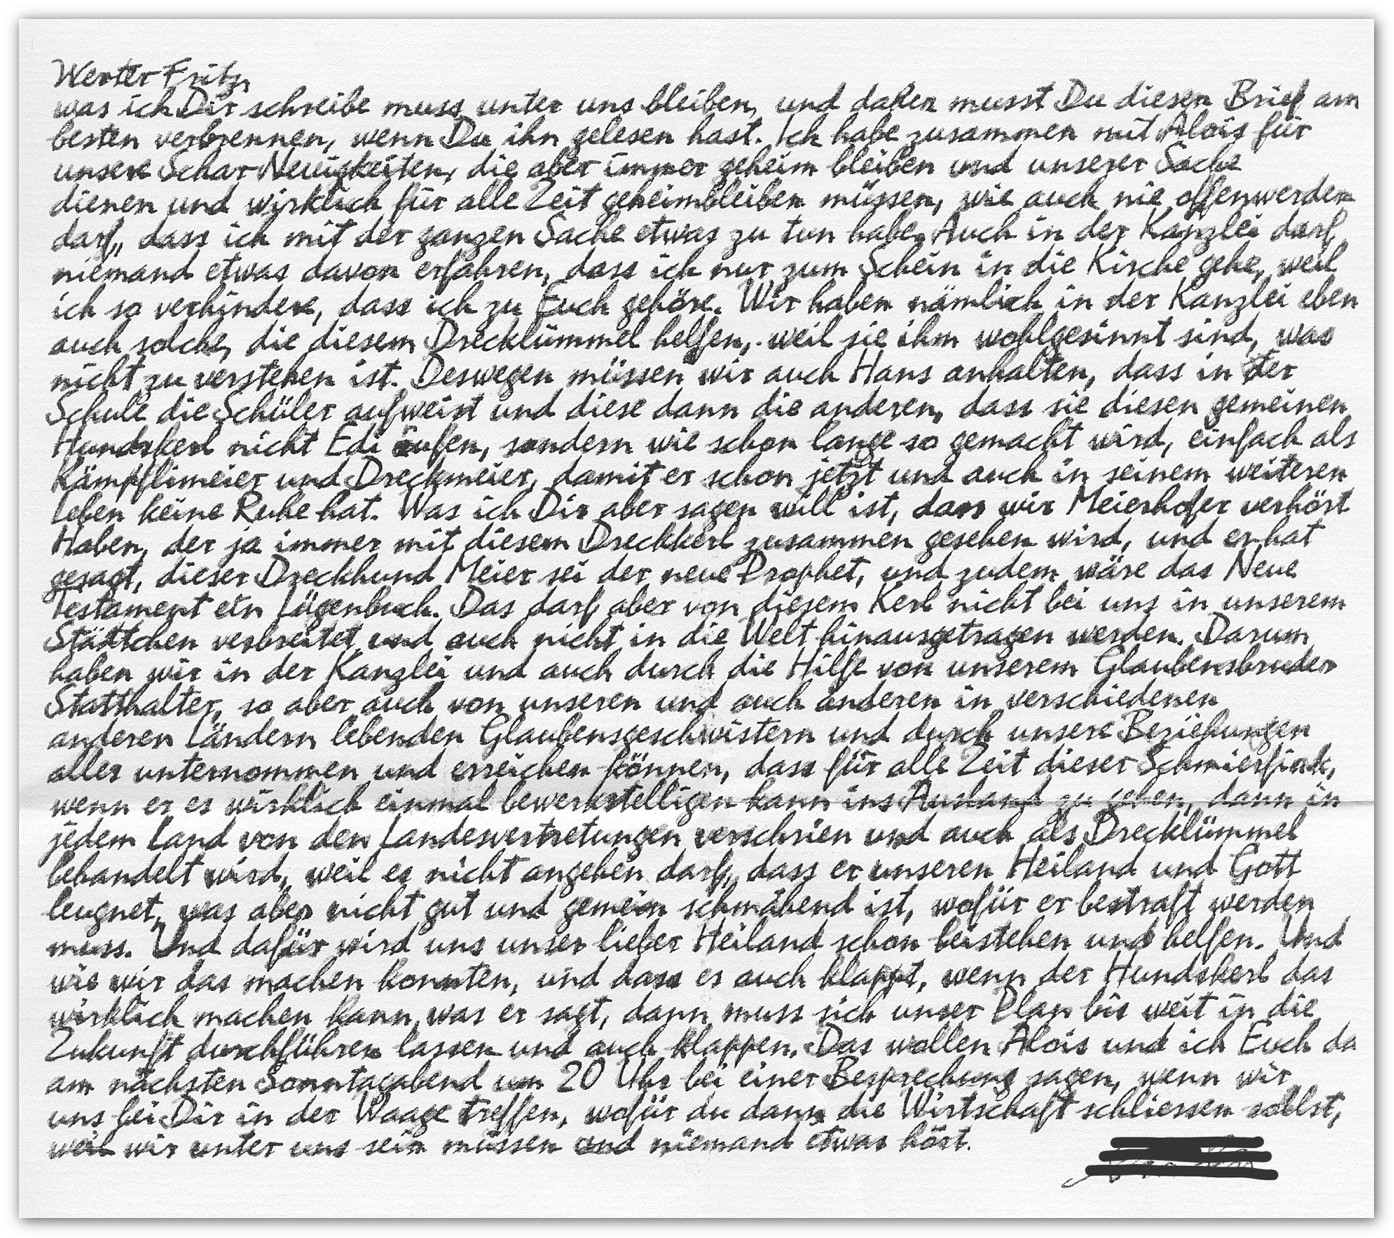 Werter Fritz,
was ich Dir schreibe muss unter uns bleiben, und daher musst Du diesen Brief am
besten verbrennen, wenn Du ihn gelesen hast. Ich habe zusammen mit Alois für
unsere Schar Neuigkeiten, die aber immer geheim bleiben und unserer Sache
dienen und wirklich für alle Zeit geheimbleiben müssen, wie auch nie offenwerden
darf, dass ich mit der ganzen Sache etwas zu tun habe. Auch in der Kanzlei darf
niemand etwas davon erfahren, dass ich nur zum Schein in die Kirche gehe, weil
ich so verhindere, dass ich zu Euch gehöre. Wir haben nämlich in der Kanzlei eben
auch solche, die diesem Drecklümmel helfen, weil sie ihm wohlgesinnt sind, was
nicht zu verstehen ist. Deswegen müssen wir auch Hans anhalten, dass in der
Schule die Schüler aufweist und diese dann die anderen, dass sie diesen gemeinen
Hundskerl nicht Edi rufen, sondern wie schon lange so gemacht wird, einfach als
Kämpflimeier und Dreckmeier, damit er schon jetzt und auch in seinem weiteren
Leben keine Ruhe hat. Was ich Dir aber sagen will ist, dass wir Meierhofer verhört
Haben, der ja immer mit diesem Dreckkerl zusammen gesehen wird, und er hat
gesagt, dieser Dreckhund Meier sei der neue Prophet, und zudem wäre das Neue
Testament ein Lügenbuch. Das darf aber von diesem Kerl nicht bei uns in unserem
Städtchen verbreitet und auch nicht in die Welt hinausgetragen werden. Darum
haben wir in der Kanzlei und auch durch die Hilfe von unserem Glaubensbruder
Statthalter, so aber auch von unseren und auch anderen in verschiedenen
anderen Ländern lebenden Glaubensgeschwistern und durch unsere Beziehungen
alles unternommen und erreichen können, dass für alle Zeit dieser Schmierfink,
wenn er es wirklich einmal bewerkstelligen kann ins Ausland zu gehen, dann in
jedem Land von den Landesvertretungen verschrien und auch als Drecklümmel
behandelt wird, weil es nicht angehen darf, dass er unseren Heiland und Gott
leugnet, was aber nicht gut und gemein schmähend ist, wofür er bestraft werden
muss. Und dafür wird uns unser lieber Heiland schon beistehen und helfen. Und
wie wir das machen konnten, und dass es auch klappt, wenn der Hundskerl das
wirklich machen kann, was er sagt, dann muss sich unser Plan bis weit in die
Zukunft durchführen lassen und auch klappen. Das wollen Alois und ich Euch da
am nächsten Sonntagabend um 20 Uhr bei einer Besprechung sagen, wenn wir
uns bei Dir in der Waage treffen, wofür du dann die Wirtschaft schliessen sollst,
weil wir unter uns sein müssen und niemand etwas hört.